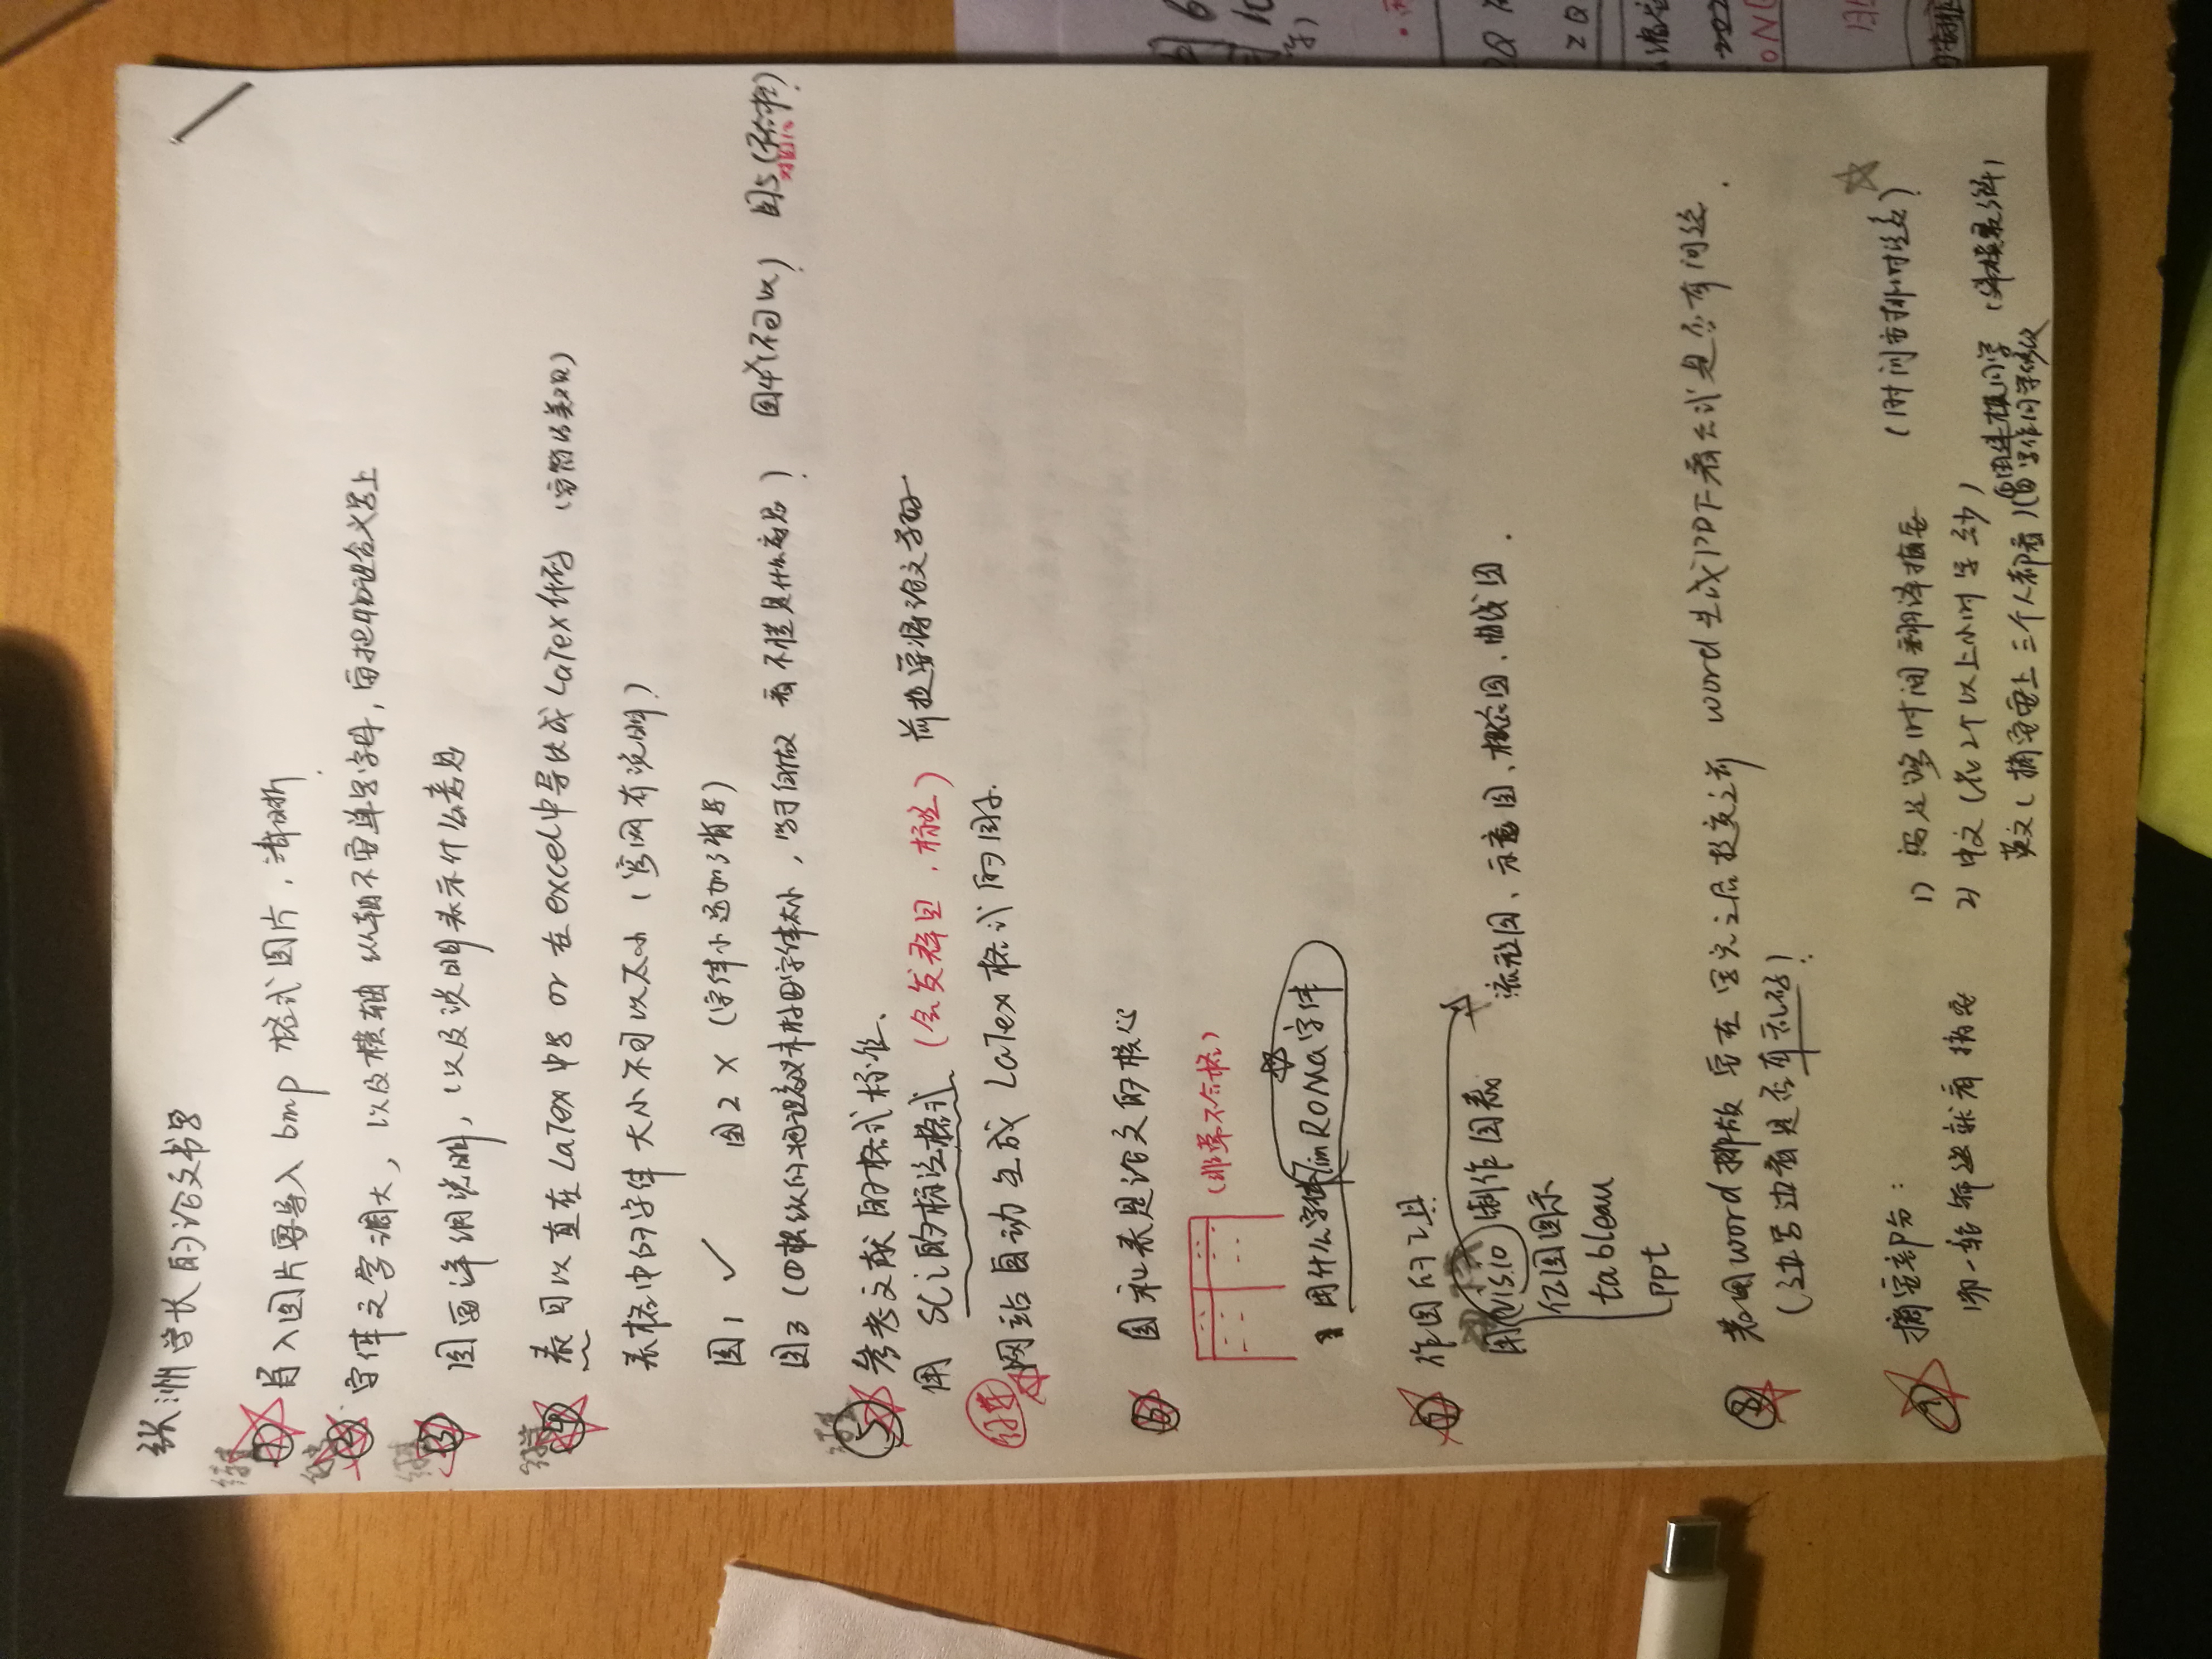 张洲学长的论文书写
① 导入图片要导入bmp格式图片，清晰
② 字体文字调大，以及横轴纵轴不要单写字母，要把物理含义写上
③ 图要详细说明，以及说明表示什么意思
④ 表可以直在LaTex中写 or 在excel中导出成LaTex代码（要简洁美观）
表格中的字体大小不可以太小（官网有说明）
图1 ✓ 图2 ×（字体小还加了背景）
图3（①横纵的物理意义未标②字体太小， 看不懂是什么意思） 图4×（不可以） 图5（不合格）
⑤ 参考文献的格式标准、
用 SCi的标注格式（会发群里，标注）前提要将论文
网站自动生成LaTex格式的图片.
⑥ 图和表是论文的核心
（非常不合格）
用什么字体 Tim RoMa字体
⑦ 作图的工具
用Visio制作图表 流程图、示意图、概念图、曲线图.
亿图图示
tableau
ppt
⑧ 若用word排版 要在写完之后提交之前 word生成PDF看公式是否有问题.
（边写边看是否有乱码）
⑨ 摘要部分： 1) 留足够时间翻译摘要（时间安排时注意）
第一轮筛选就看摘要 2) 中文（花2个以上小时 ）
英文（摘要要上三个人都看）①由建模同学
② 写作同学修改